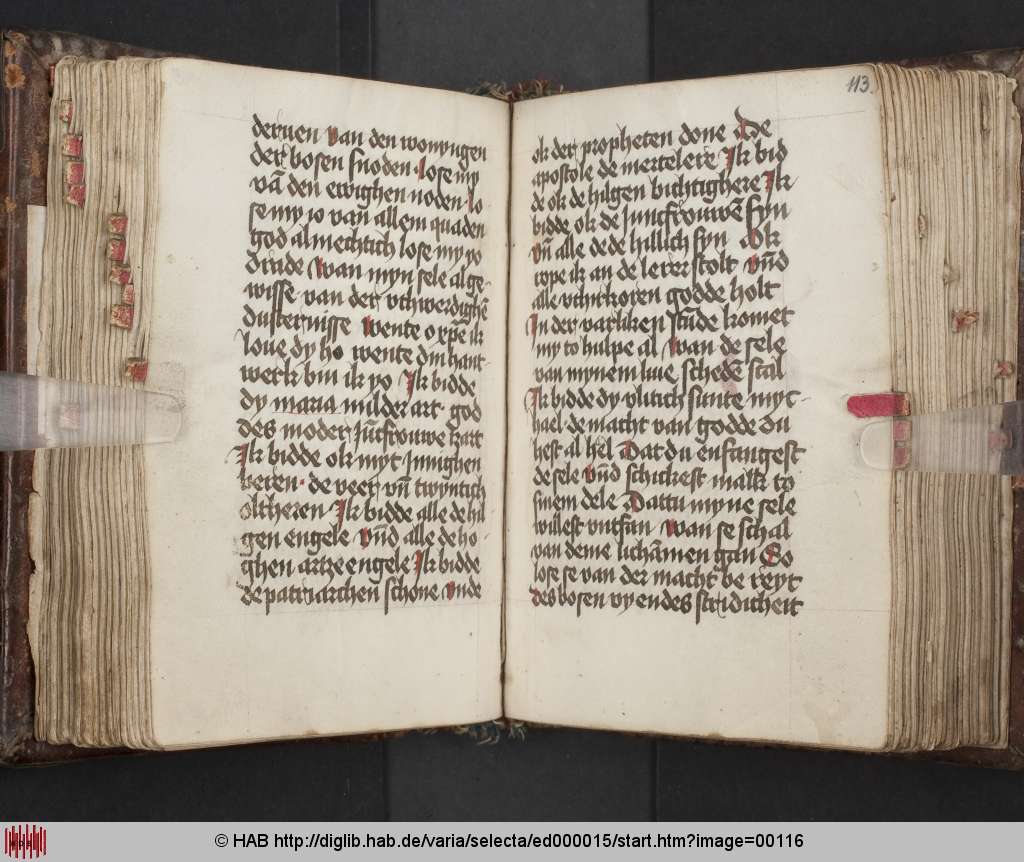 deruen van den wonyngen
der bosen snoden · lose my
vā den ewighen noden · lo
se my io van allem quaden
god almechtich lose my yo
drade wan myn sele al ge-
wisse van der vthwerdighē
dusternisse wente o xp̄e ik
loue dy ho wente din hant
werk bin ik yo Ik bidde
dy maria milder art · god
des moder Jūcfrouwe tzart
Ik bidde ok myt Jnnighen
beren · de veer vn̄ twyntich
oltheren Ik bidde alle de hil
gen engele vn̄d alle de ho-
ghen artze engele Ik bidde
de patriarchen schone vnde
113.
ok der propheten done De
apostole de mertelere Ik bid
de ok de hilgen bichtighere Ik
bidde ok de Juncfrouwē syn
vn̄ alle de de hillich syn Ok
rope ik an de lerer stolt vn̄d
alle vthirkoren godde holt
In der varliken stūde komet
my to hulpe al wan de sele
van mynem liue schedē scal
Ik bidde dy vlitich sunte myt-
hael · de macht van godde du
hest al hel Dat du enfangest
de sele vn̄d schickest malk to
sinem dele Dattu myne sele
willest vntfan wan se schal
van deme lichāmen gan So
lose se van der macht be reyt
des bosen vyendes stridicheit
© HAB http://diglib.hab.de/varia/selecta/ed000015/start.htm?image=00116